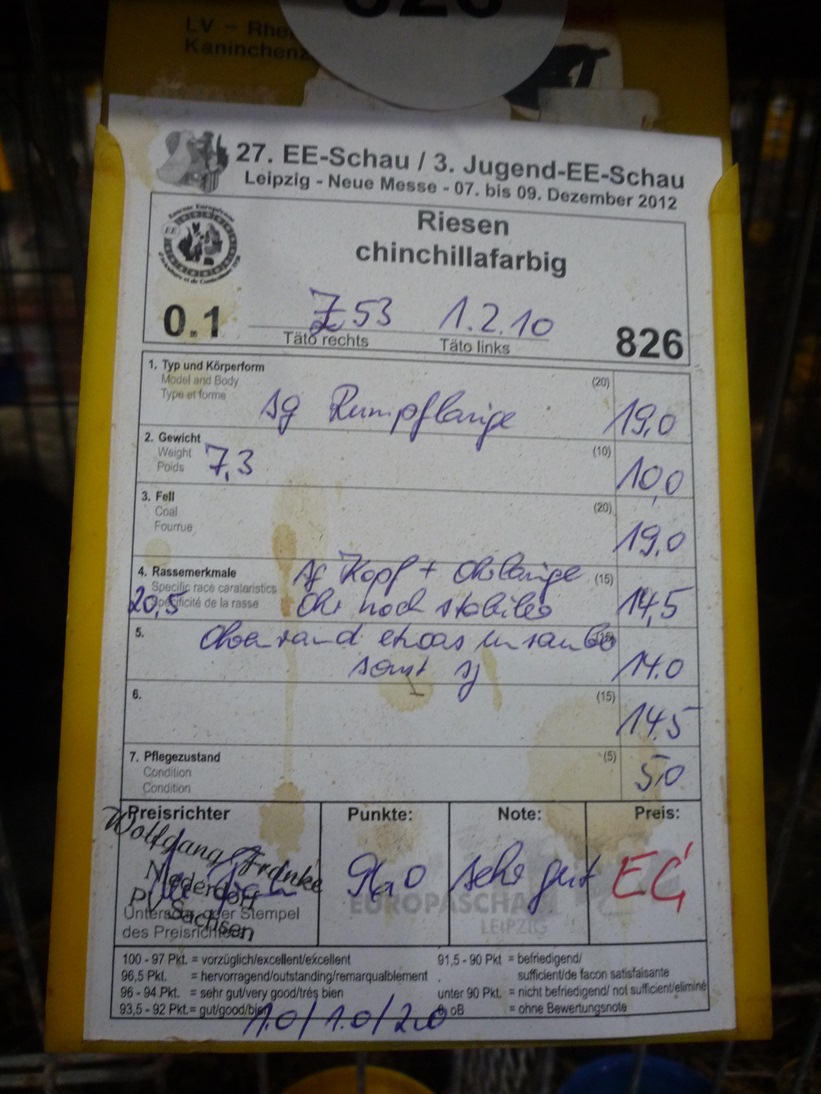 826
LV - Rhe
Kaninchenz
27. EE-Schau / 3. Jugend-EE-Schau
Leipzig - Neue Messe - 07. bis 09. Dezember 2012
Riesen
chinchillafarbig
0.1 Z 53 1.2.10 826
Täto rechts Täto links
1. Typ und Körperform (20)
Model and Body
Type et forme
sg Rumpflänge 19,0
2. Gewicht (10)
Weight
Poids 7,3 10,0
3. Fell (20)
Coal
Fourrue 19,0
4. Rassemerkmale sg Kopf + Ohrlänge (15)
Specific race carateristics
20,5 Spécificité de la rasse Ohr noch stabiler 14,5
5. Ohrenrand etwas unsauber
sonst sg 14.0
6. (15)
14.5
7. Pflegezustand (5)
Condition
Condition 5,0
Preisrichter Punkte: Note: Preis:
Wolfgang Franke
Niederdorf
PV Sachsen
96,0 sehr gut EC
EUROPASCHAU
LEIPZIG
Unterschr. oder Stempel
des Preisrichters
100 - 97 Pkt. = vorzüglich/excellent/excellent
96,5 Pkt. = hervorragend/outstanding/remarqualblement
96 - 94 Pkt. = sehr gut/very good/trés bien
93,5 - 92 Pkt.= gut/good/bien
91,5 - 90 Pkt = befriedigend/
sufficient/de facon satisfaisante
unter 90 Pkt. = nicht befriedigend/ not sufficient/eliminé
oB = ohne Bewertungsnote
1.0/1.0/2.0